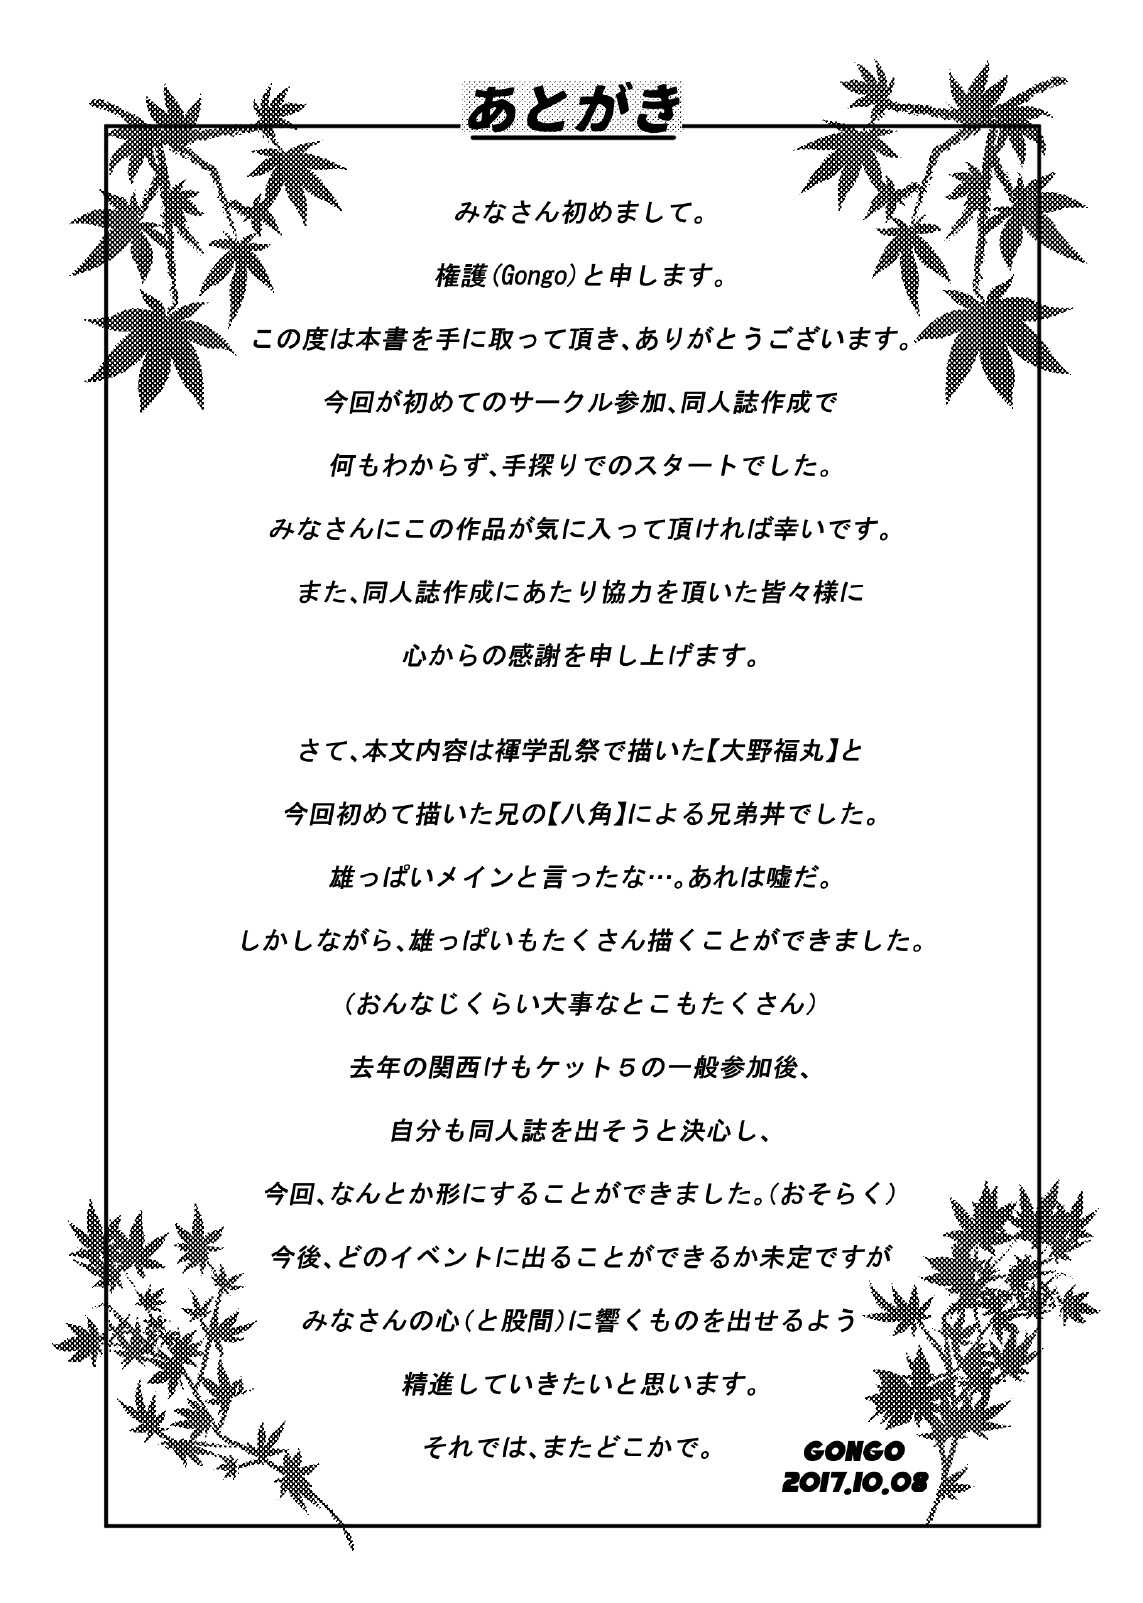 あとがき
みなさん初めまして。
権護(Gongo)と申します。
この度は本書を手に取って頂き、ありがとうございます。
今回が初めてのサークル参加、同人誌作成で
何もわからず、手探りでのスタートでした。
みなさんにこの作品が気に入って頂ければ幸いです。
また、同人誌作成にあたり協力を頂いた皆々様に
心からの感謝を申し上げます。
さて、本文内容は褌学乱祭で描いた【大野福丸】と
今回初めて描いた兄の【八角】による兄弟丼でした。
雄っぱいメインと言ったな…。あれは嘘だ。
しかしながら、雄っぱいもたくさん描くことができました。
（おんなじくらい大事なとこもたくさん）
去年の関西けもケット５の一般参加後、
自分も同人誌を出そうと決心し、
今回、なんとか形にすることができました。（おそらく）
今後、どのイベントに出ることができるか未定ですが
みなさんの心（と股間）に響くものを出せるよう
精進していきたいと思います。
それでは、またどこかで。
GONGO
2017.10.08